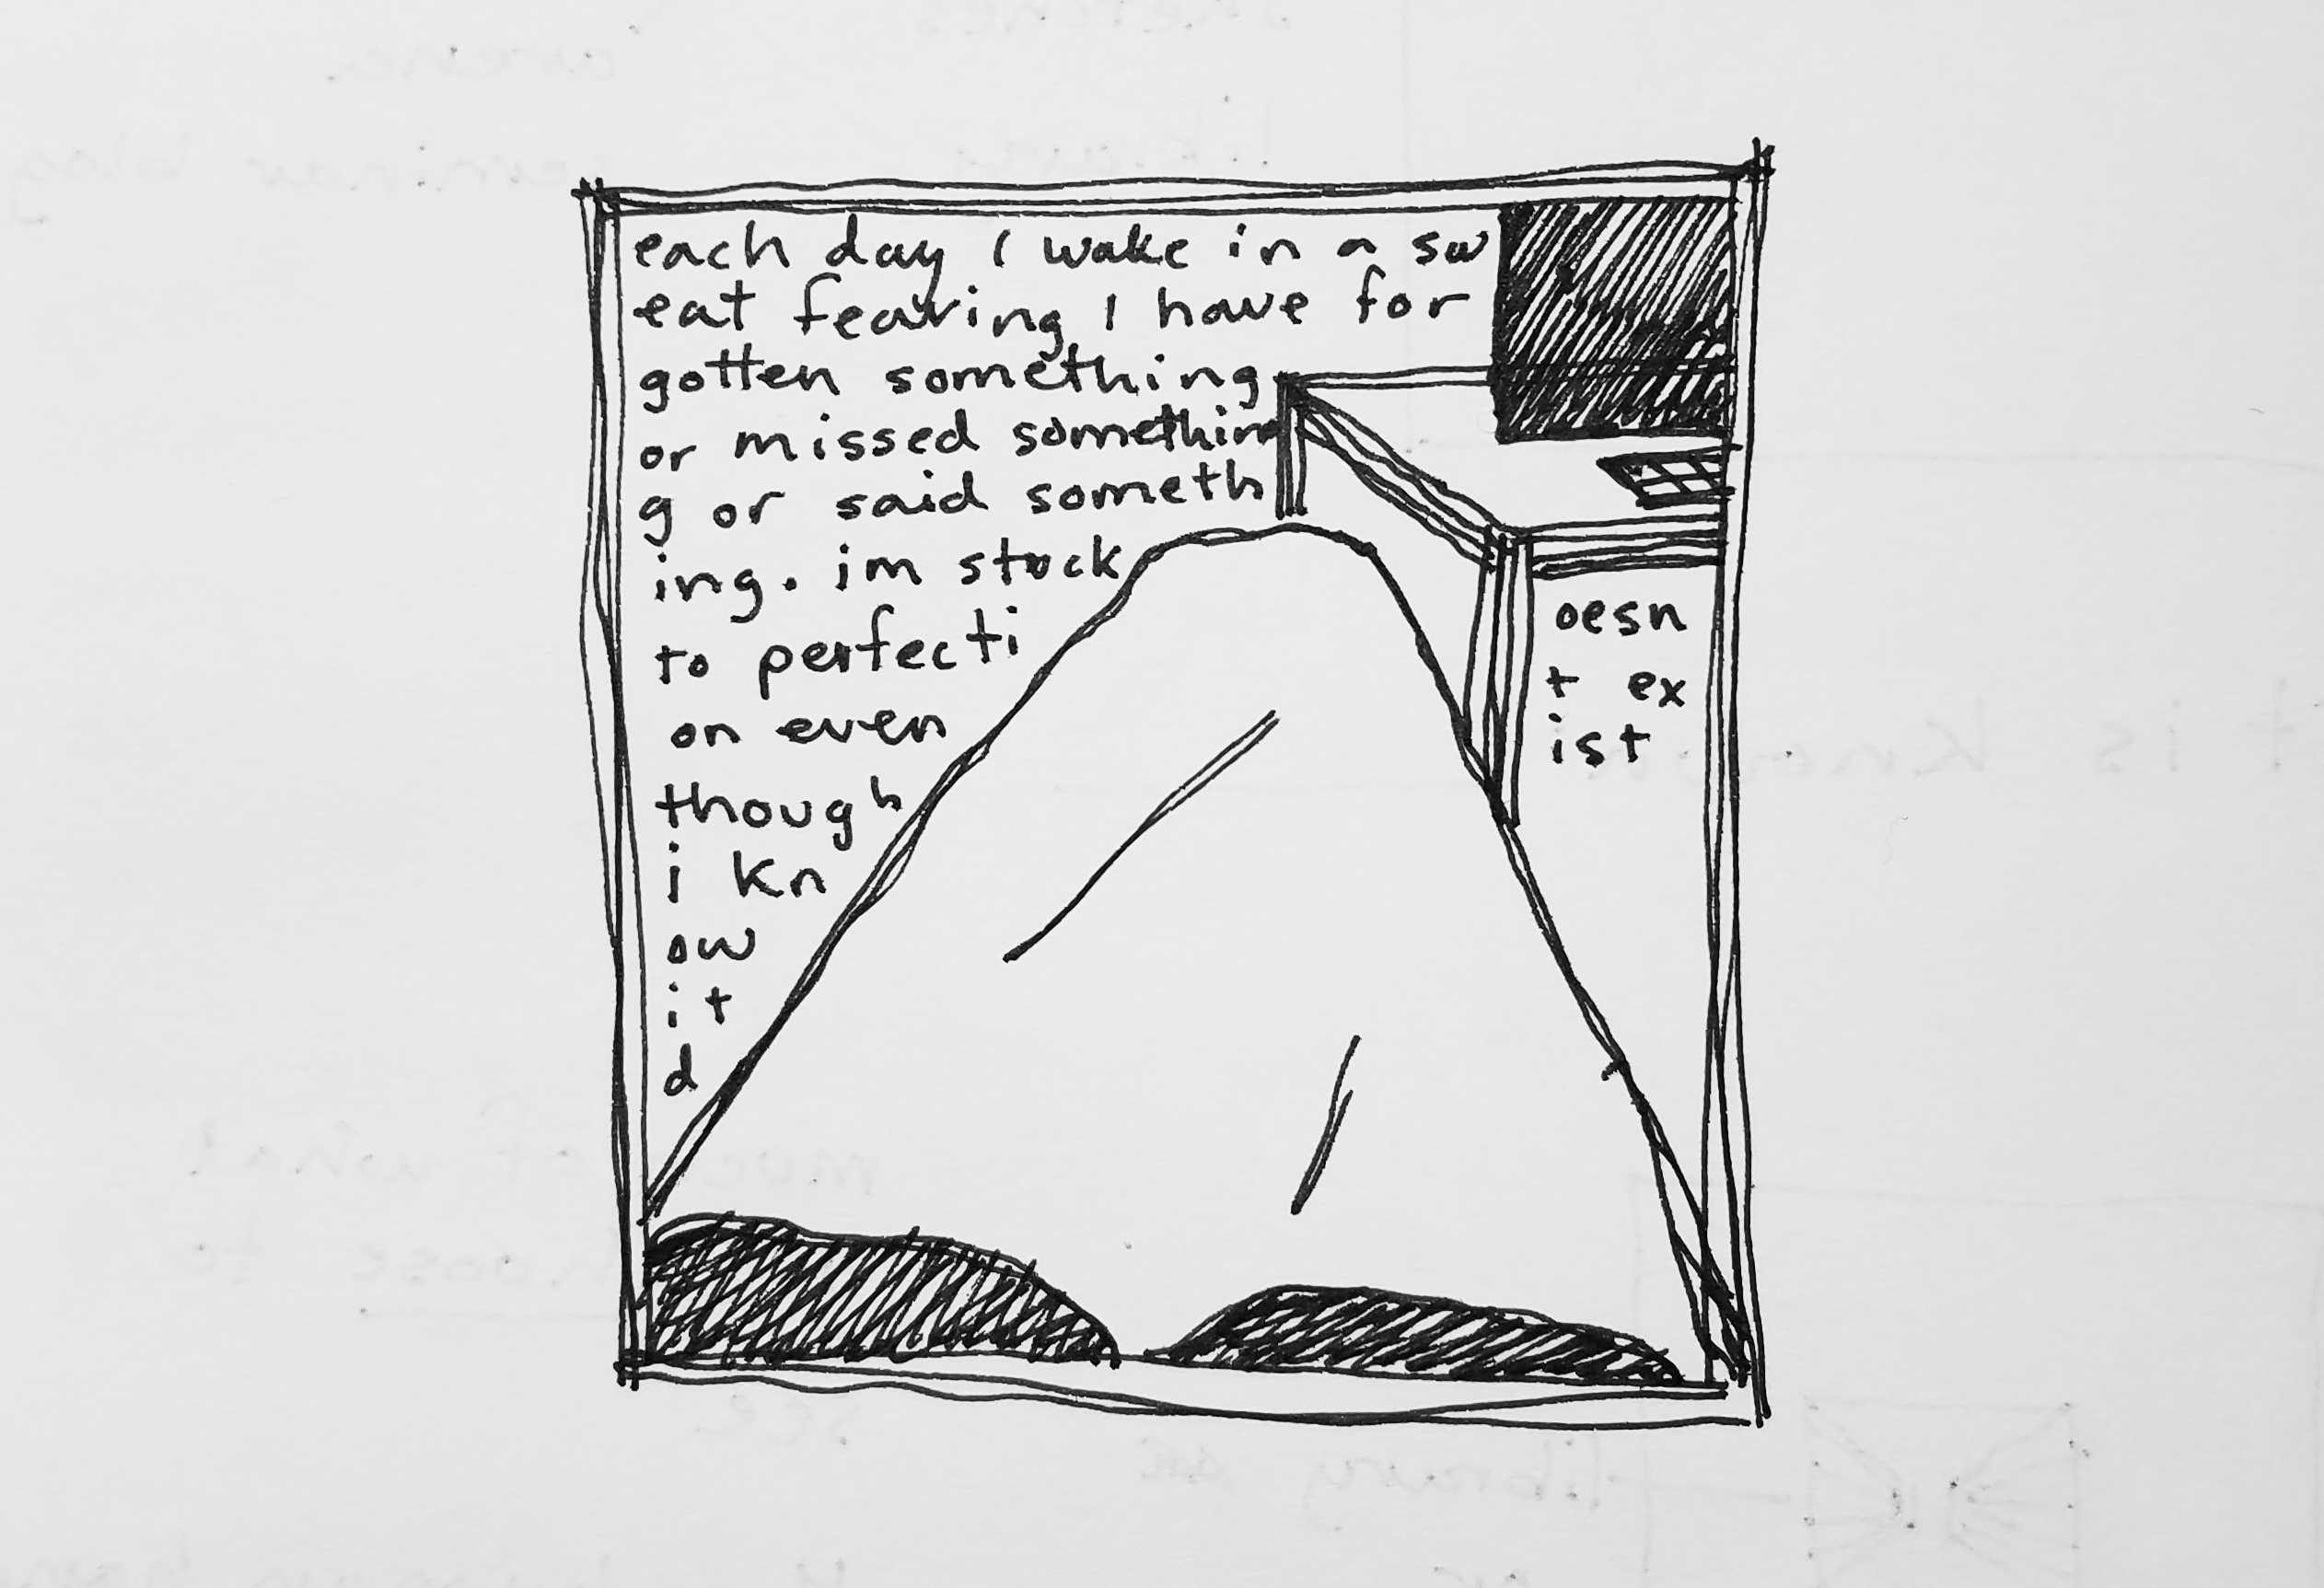 each day I wake in a sw
eat fearing I have for
gotten something
or missed somethin
g or said someth
ing. im stuck
to perfecti
on even
though
i kn
ow
it
d
oesn
t ex
ist